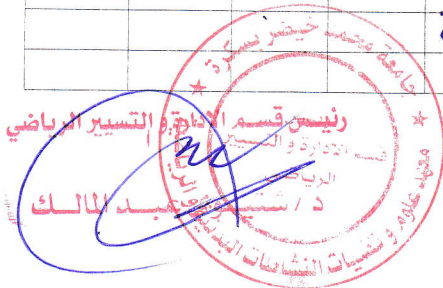 جامعة محمد خيضر بسكرة
معهد علوم و تقنيات النشاطات البدنية
قسم الإدارة و التسيير
الرياضي
رئيس قسم الإدارة و التسيير الرياضي
د / عبد المالك